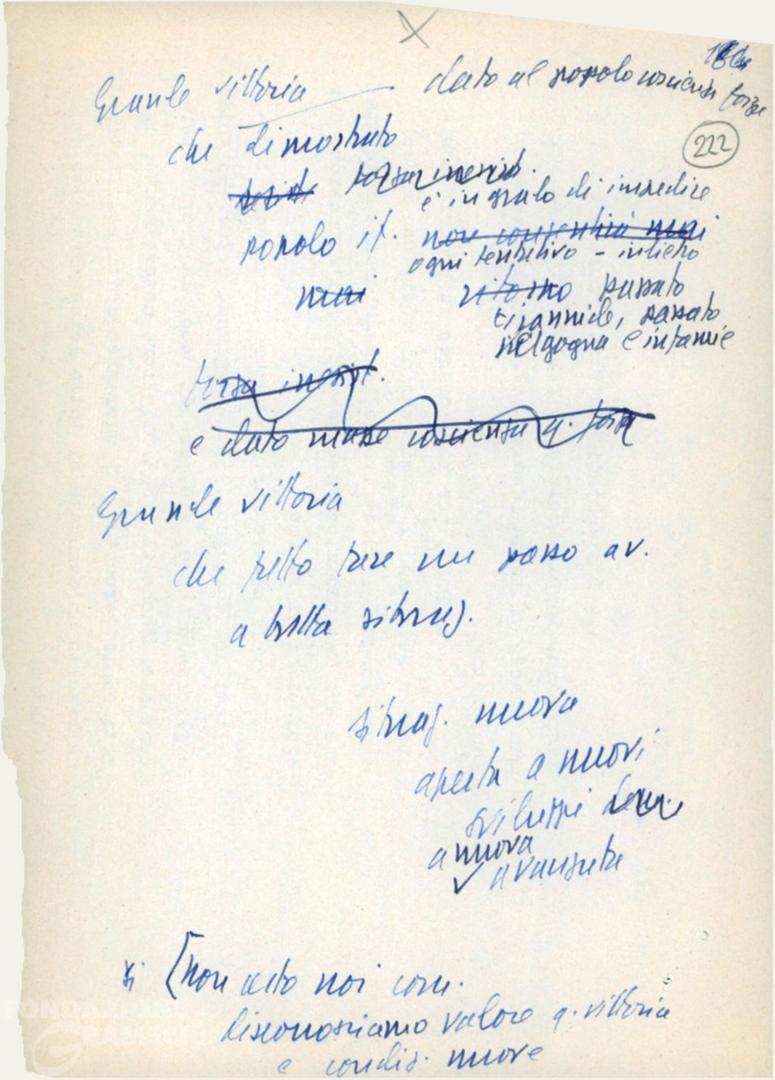 Grande vittoria — dato al popolo coscienza forza
222
che dimostrato
forza inesist.
è in grado di impedire
popolo it. non consentirà mai
ogni tentativo - indietro
mai ritorno passato
tirannide, passato
vergogna e infamie
forza inesist.
e dato masse coscienza q. forza
Grande vittoria
che fatto fare un passo av.
a tutta situaz.
situaz. nuova
aperta a nuovi
sviluppi dem.
a nuova
avanzata
si [non certo noi com.
disconosciamo valore q. vittoria
e condiz. nuove
FONDAZIONE
GRAMSCI